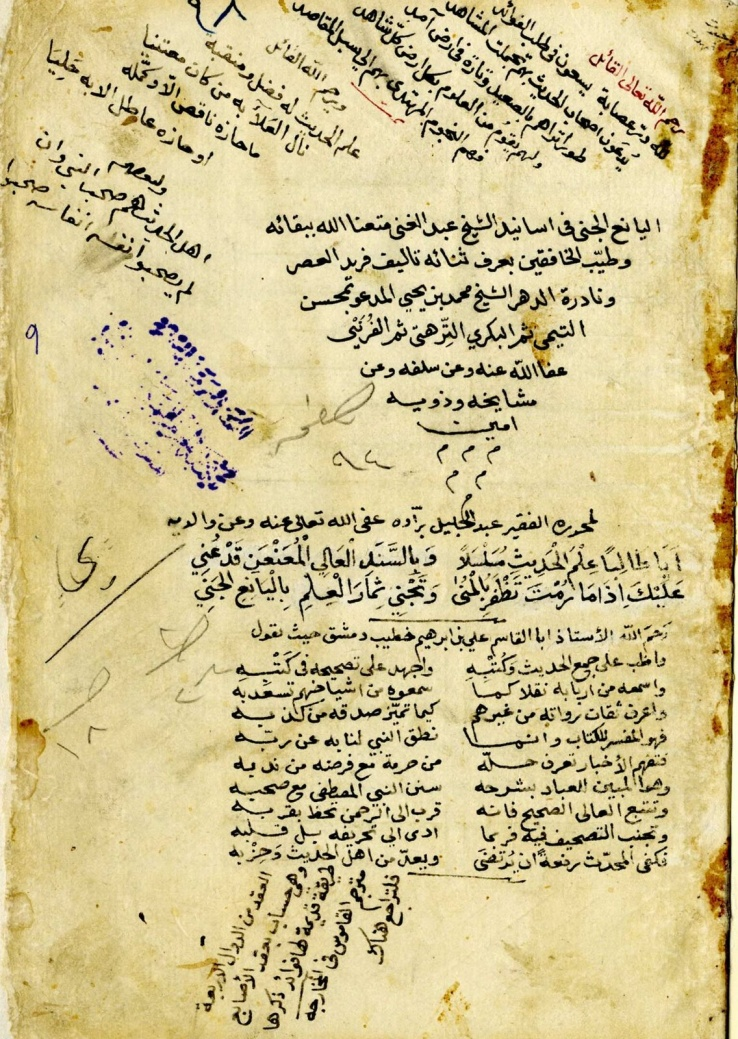 رحم الله تعالى القائل
لله در عصابة يسعون في طلب الفوائد
يدعون أصحاب الحديث بهم تجملت المشاهد
طورا تراهم بالصعيد وتارة في ارض آمد
ولهم يقوم من العلوم بكل ارض كل شاهد
وهم النجوم المهتدى بهم الى سبل المقاصد
تمت
ويرحم الله القائل
علم الحديث له فضل ومنقبة
نال العلاء به من كان معتنيا
ما حازه ناقص الا وكمله
او حازه عاطل الا به حليا
ولبعضهم
اهل الحديث هم صحب النبي وان
لم يصحبوا نفسه انفاسه صحبوا
اليانع الجنى في اسانيد الشيخ عبد الغنى متعنا الله ببقائه
وطيب الخافقين بعرف ثنائه تاليف فريد العصر
ونادرة الدهر الشيخ محمد بن يحيى المدعو بمحسن
التيمى ثم البكري التّرهتى ثم الفُرَيْنى
عفا الله عنه وعن سلفه وعن
مشايخه وذويه
امين
م م م
م م
م
٩
صفحه
٩٤
لمحرره الفقير عبد الجليل برّاده عفى الله تعالى عنه وعن والديه
اَيَا طَالِبًا عِلْمَ الْحَدِيثِ مُسَلْسَلًا وَبِالسَّنَدِ العَالِي الْمُعَنْعَنِ قَدْ عُنِي
عَلَيْكَ اِذَا مَا رُمْتَ تَظْفَرُ بِالْمُنىٰ وَتَجْنِي ثِمَارَ الْعِلْمِ بِالْيَانِعِ الْجَنِي
رحم الله الأستاذ ابا القاسم علي بن ابراهيم خطيب دمشق حيث يقول
واظب على جمع الحديث وكَتْبِهِ واجهد على تصحيحه في كَتْبِه
واسمعه من اربابه نقلا كما سمعوه من اشياخهم تسعد به
واعرف ثقات رواته من غيرهم كيما تميّز صدقه من كذبه
فهو المفسر للكتاب وانما نطق النبي لنا به عن ربه
فتفهم الأخبار تعرف حله من حرمه مع فرضه من ندبه
وهو المبين العباد بشرحه سنن النبي المصطفى مع صحبه
وتتبع العالى الصحيح فانه قرب الى الرحمن تحظ بقربه
وتجنب التصحيف فيه فربما ادى الى تحريفه بل قلبه
فكفى المحدّث رفعةً ان يُرتضى ويعدّ من اهل الحديث وحِزْبه
العقد من الدوال الاربعة
وهي حساب بعقد الأصابع
طريقة قديمة لها فوائد ذكرها
مترجم القاموس في الخارجه
فلتراجع هناك
١٨